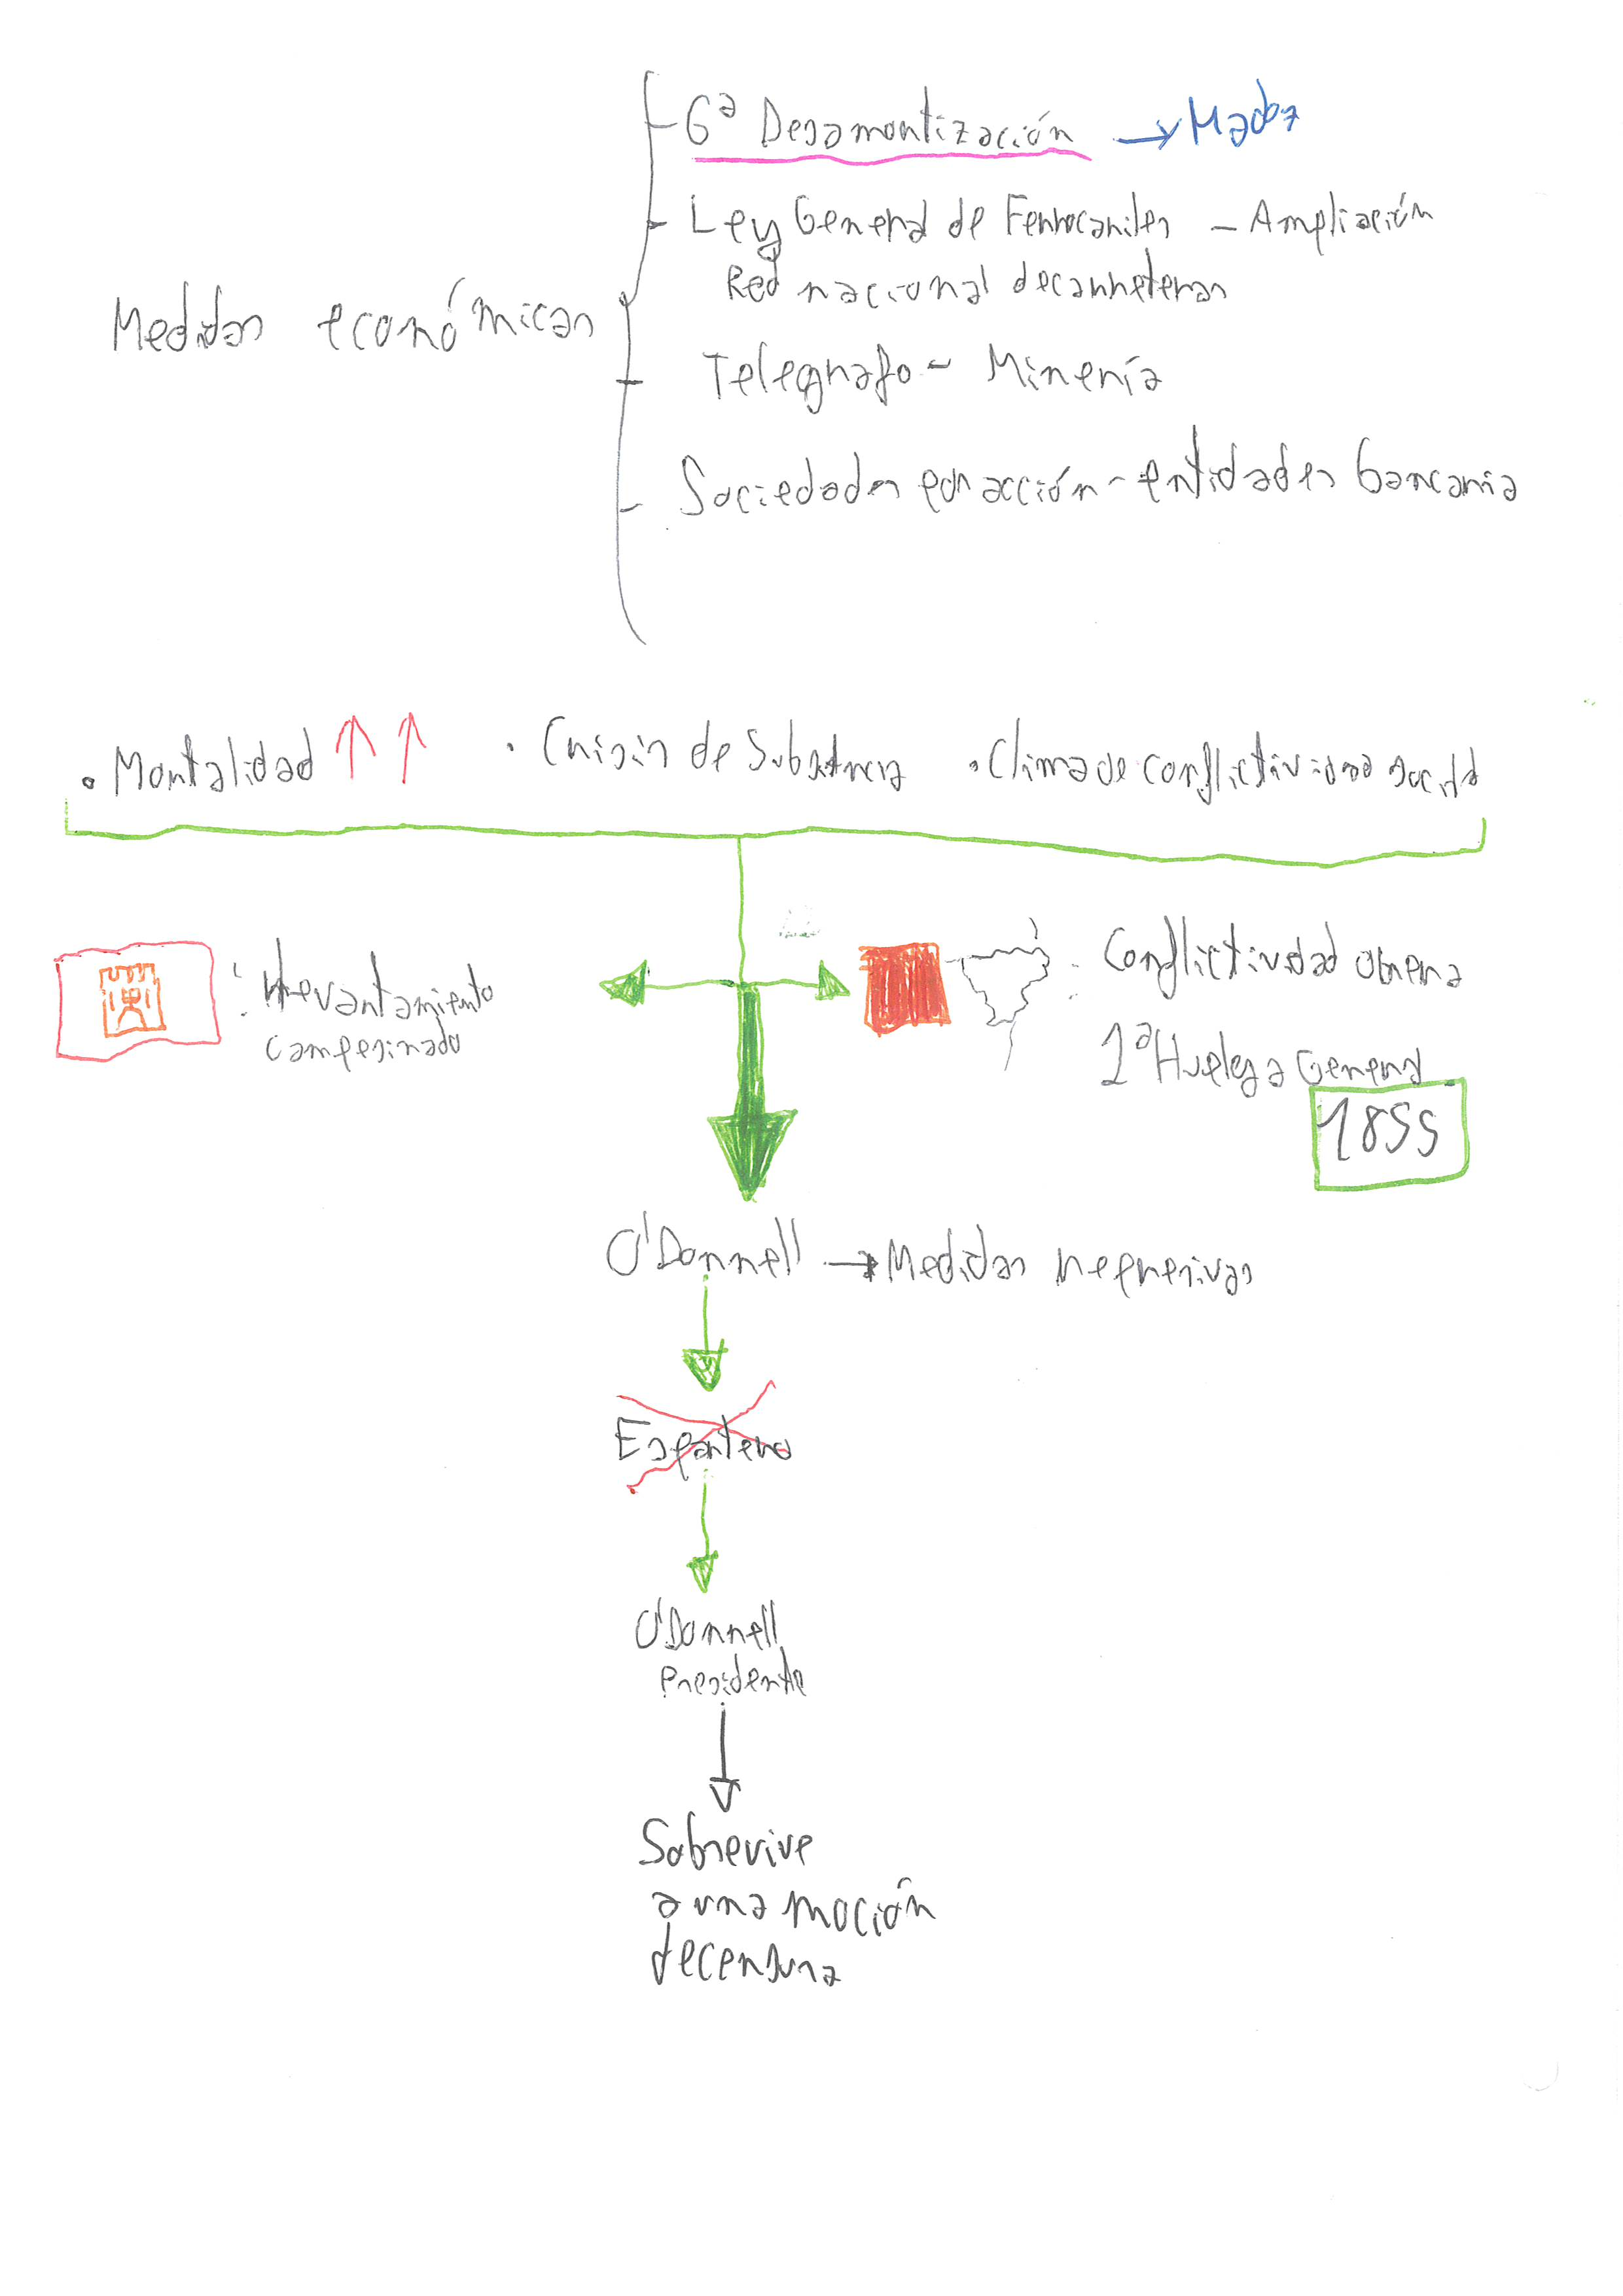 6ª Desamortización → Madoz
Ley General de Ferrocarriles – Ampliación
Red nacional de carreteras
Medidas económicas
Telegrafo – Minería
Sociedades por acción – entidades bancaria
• Mortalidad ↑↑ • Crisis de Subsistencia • Clima de conflictividad social
: levantamiento
campesinado
: Conflictividad obrera
1ª Huelega General
1855
O'Donnell → Medidas represivas
Espartero
O'Donnell
Presidente
Sobrevive
a una moción
de censura